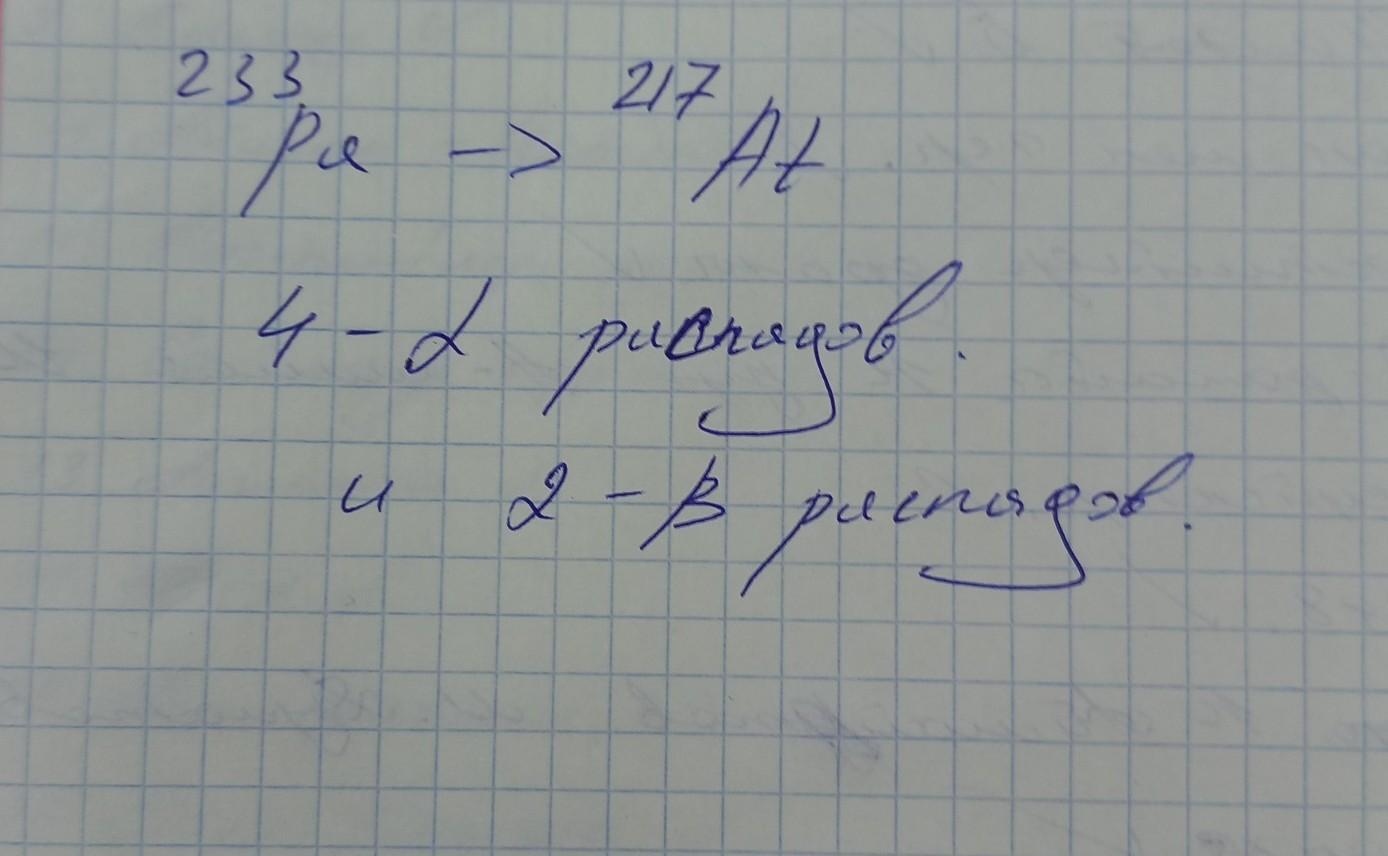 233Pa -> 217At
4 - α распадов.
и 2 - β распадов.